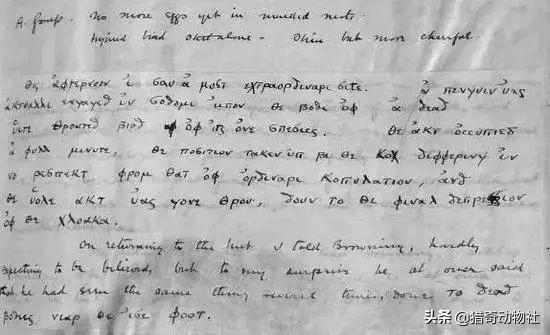 A. Group. No more eggs yet in nests.
Injured bird alone - thin but more cheerful.
Θις ἀφτερνοον ἰ σαυ ἀ μοστ εχτραορδιναρι σιτε. ἀ πενγυιν ὑας
ἀκτυαλλι ενγαγεδ ἰν σοδομι ὐπον θε βοδε ὀφ ἀ δεαδ
ὑιτε θροατεδ βιρδ ὀφ ἰτς ὀνε σπεσιες. θε ἀκτ ὀσσυπιεδ
ἀ φυλλ μινυτε, θε ποσιτιον τακεν ὑπ βι θε κοχ διφφερινγ ἰν
νο ρεσπεκτ φρομ θατ ὀφ ὀρδιναρι κοπυλατιον, ἀνδ
θε ὑολε ακτ ὑας γονε θρου, δουν το θε φιναλ δεπρεσσιον
ὀφ θε χλοακα.
On returning to the hut I told Browning, hardly
expecting to be believed, but to my surprise he at once said
that he had seen the same thing several times, done to dead
βοδιες νεαρ θε ισε φοοτ.
头条 @猎奇动物社